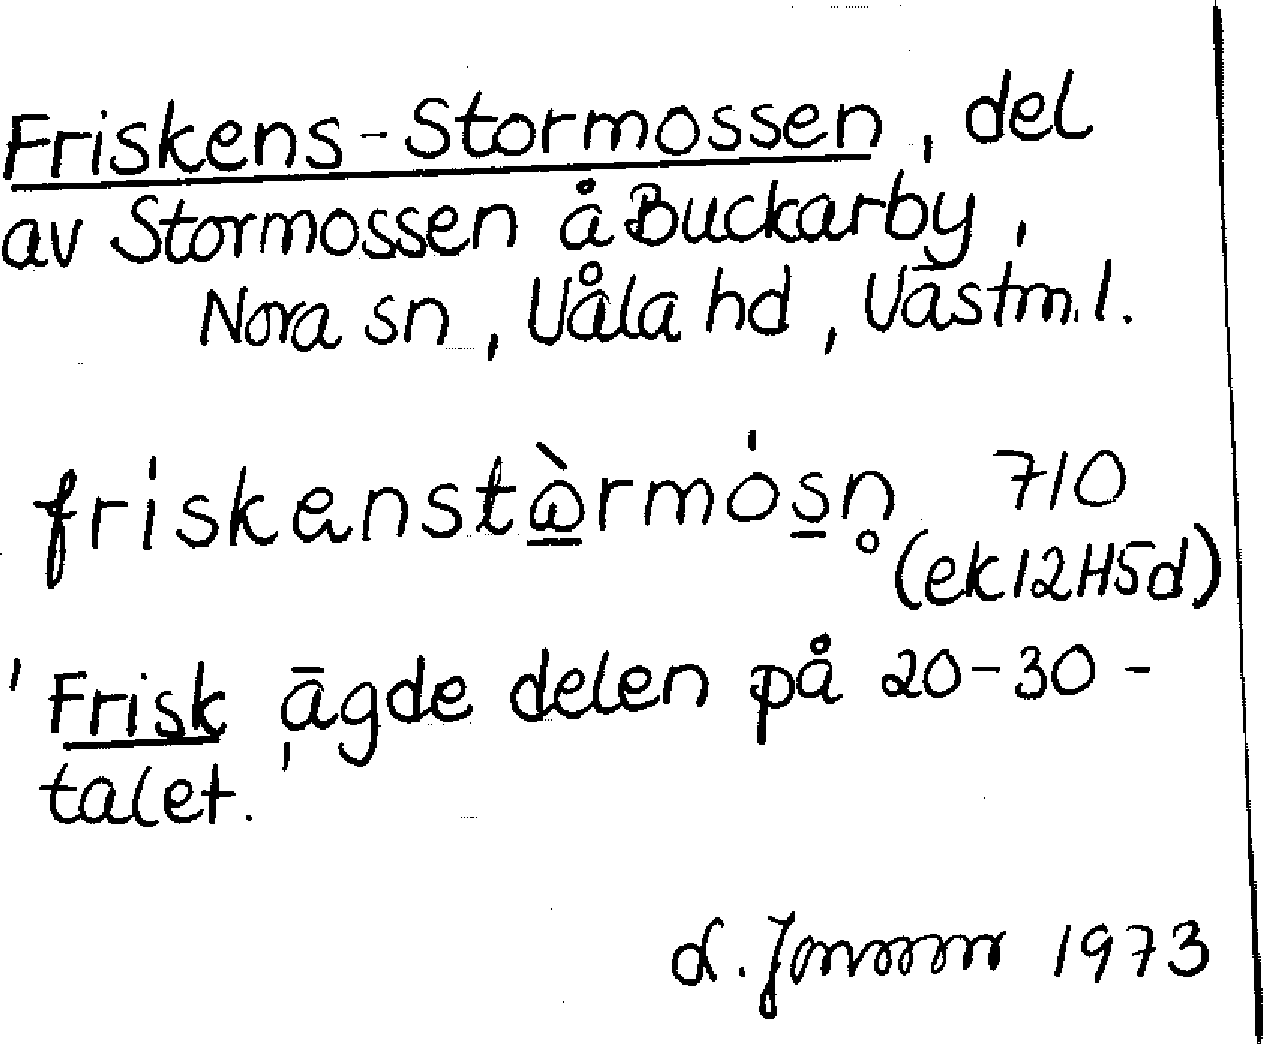 Friskens-Stormossen, del
av Stormossen å Buckarby,
Nora sn, Våla hd, Västm.l.
friskenstòrmósn̥ 710
(ek12H5d)
'Frisk ägde delen på 20-30-
talet.
1973